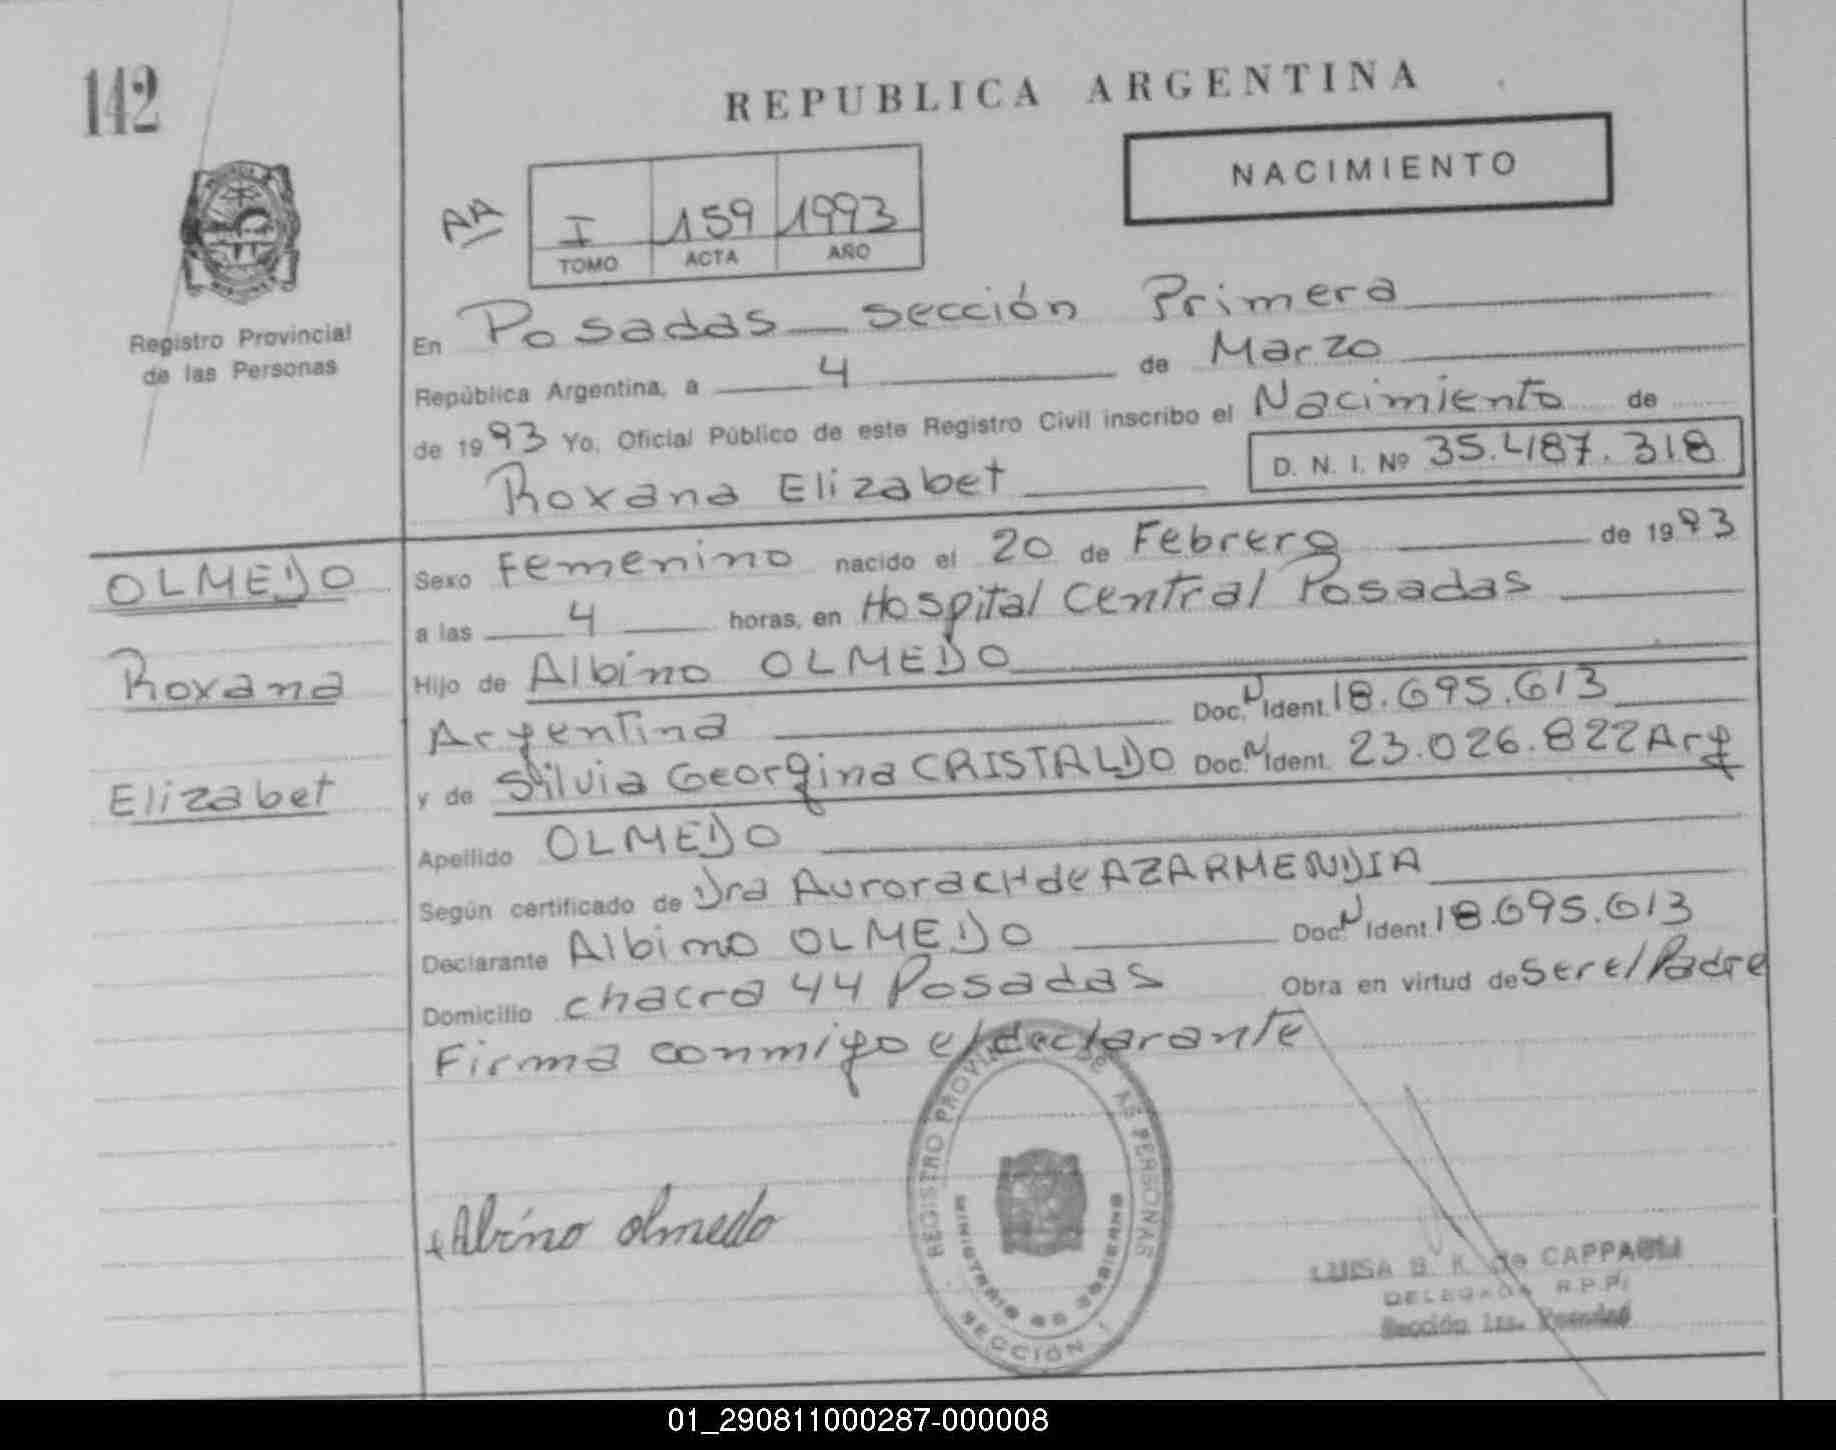 142
REPUBLICA ARGENTINA
NACIMIENTO
AA
I 159 1993
TOMO ACTA AÑO
Registro Provincial
de las Personas
En Posadas sección Primera
República Argentina, a 4 de Marzo
de 1993 Yo, Oficial Público de este Registro Civil inscribo el Nacimiento de
Roxana Elizabet D. N. I. Nº 35.487.318
OLMEDO
Roxana
Elizabet
Sexo Femenino nacido el 20 de Febrero de 1993
a las 4 horas, en Hospital Central Posadas
Hijo de Albino OLMEDO
Argentina Doc. N Ident. 18.695.613
y de Silvia Georgina CRISTALDO Doc. N Ident. 23.026.822 Arg
Apellido OLMEDO
Según certificado de Dra Aurora CH de AZARMENDIA
Declarante Albino OLMEDO Doc. N Ident. 18.695.613
Domicilio chacra 44 Posadas Obra en virtud de ser el Padre
Firma conmigo el declarante
Albino olmedo
REGISTRO PROVINCIAL DE LAS PERSONAS
MINISTERIO DE GOBIERNO
SECCIÓN 1
LUISA B. K. de CAPPAELLI
DELEGADA R.P.P.
Sección 1ra. Posadas
01_290811000287-000008